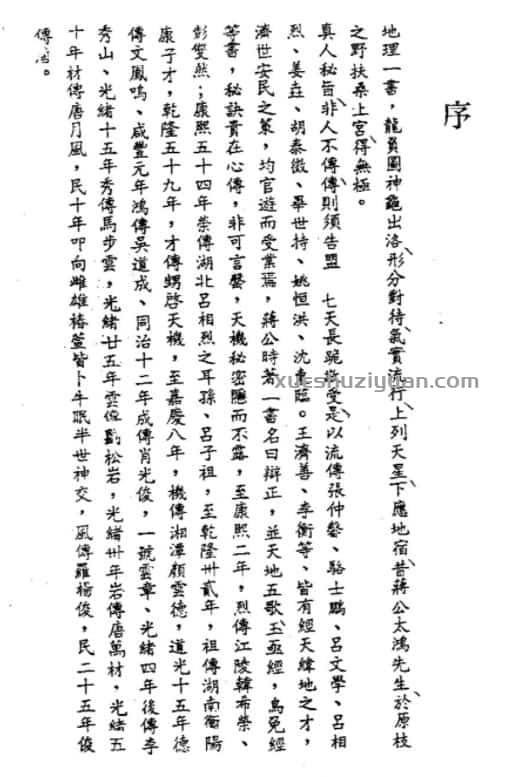 序
地理一書，龍負圖神龜出洛、形分對待、氣實流行、上列天星、下應地宿、昔蔣公太鴻先生、於原枝
之野扶桑上宮、得無極。
真人秘旨、非人不傳、傳則須告盟　七天長跪受是、以流傳張仲馨、駱士鵬、呂文學、呂相
烈、姜垚、胡泰徵、畢世持、姚恒洪、沈臨。王濟善、李衡等、皆有經天緯地之才，
濟世安民之策，均官遊而受業焉，蔣公時著一書名曰辯正，並天地五歌、玉函經，烏兔經
等書，秘訣貴在心傳，非可言罄，天機秘密隱而不露，至康熙二年，烈傳江陵韓希榮、
彭雙然；康熙五十四年榮傳湖北呂相烈之耳孫、呂子祖，至乾隆卅貳年，祖傳湖南衡陽
康子才，乾隆五十九年，才傳甥啓天機，至嘉慶八年，機傳湘潭顏雲德，道光十五年德
傳文鳳鳴、咸豐元年鴻傳吳道成、同治十二年成傳肖光俊，一號雲章、光緒四年後傳李
秀山、光緒十五年秀傳馬步雲，光緒廿五年雲傳劉松岩，光緒卅年岩傳唐萬材，光緒五
十年材傳唐月風，民十年叩向雌雄椿萱皆卜牛眠半世神交，風傳羅楊俊，民二十五年俊
傳。
xueshuziyuan.com